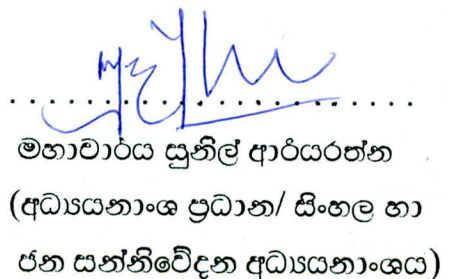 මහාචාර්ය සුනිල් ආරියරත්න
(අධ්‍යයනාංශ ප්‍රධාන/ සිංහල හා
ජන සන්නිවේදන අධ්‍යයනාංශය)